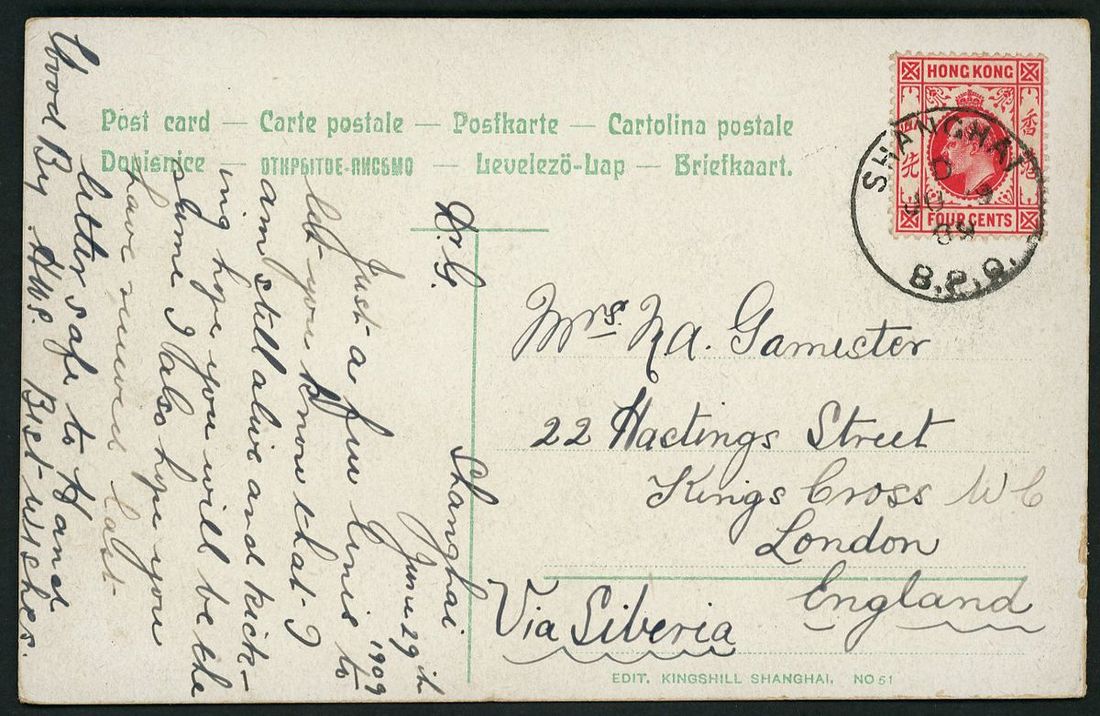 Post card — Carte postale — Postkarte — Cartolina postale
Dopisnice — ОТКРЫТОЕ-ПИСЬМО — Levelezö-Lap — Briefkaart.
HONG KONG
香港
四先
FOUR CENTS
SHANGHAI
D
30 
09
B.P.O.
Shanghai
June 29th
1909
Just a few lines to
let you know that I
am still alive and kick-
ing hope you will be the
same I also hope you
have received last
letter safe to Hand
Good By. Best wishes.
Mrs. 
Gamester
22 Hastings Street
Kings Cross W C
London
England
Via Siberia
EDIT. KINGSHILL SHANGHAI. NO 51